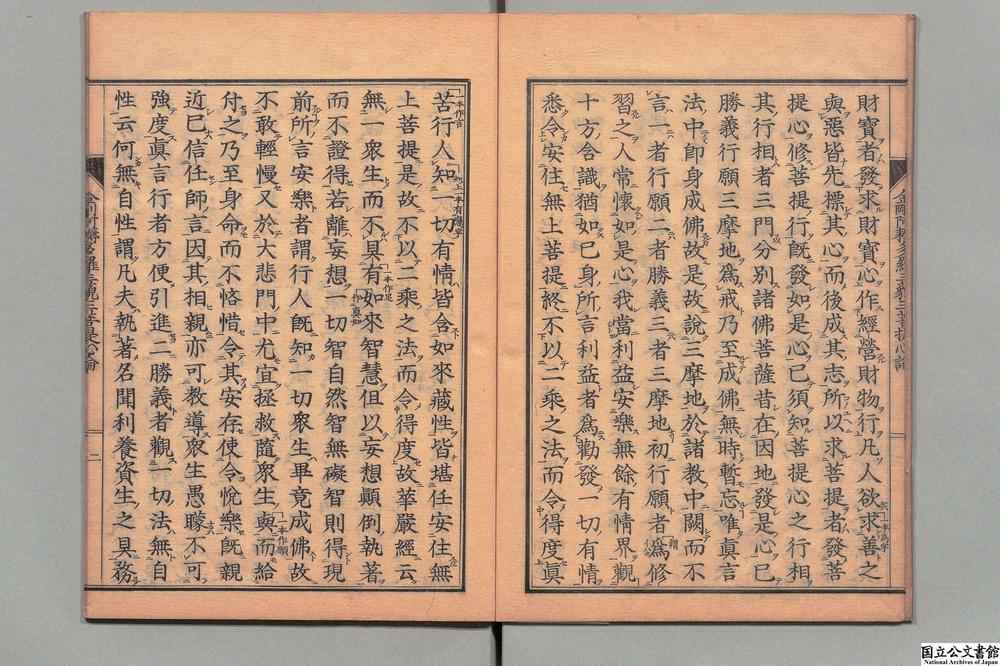 財寶者發求財寶心作經營財物行凡人欲求善之
與惡皆先標其心而後成其志所以求菩提者發菩
提心修菩提行既發如是心已須知菩提心之行相
其行相者三門分別諸佛菩薩昔在因地發是心已
勝義行願三摩地為戒乃至成佛無時暫忘唯眞言
法中即身成佛故是故說三摩地於諸教中闕而不
言一者行願二者勝義三者三摩地初行願者為修
習之人常懷如是心我當利益安樂無餘有情界觀
十方含識猶如己身所言利益者為勸發一切有情
悉令安住無上菩提終不以二乘之法而令得度眞
苦行人知一切有情皆含如來藏性皆堪任安住無
上菩提是故不以二乘之法而令得度故華嚴經云
無一衆生而不具有如來智慧但以妄想顛倒執著
而不證得若離妄想一切智自然智無礙智則得現
前所言安樂者謂行人既知一切衆生畢竟成佛故
不敢輕慢又於大悲門中尤宜拯救隨衆生與而給
付之乃至身命而不悋惜令其安存使令悅樂既親
近已信任師言因其相親亦可教導衆生愚矇不可
強度眞言行者方便引進二勝義者觀一切法無自
性云何無自性謂凡夫執著名聞利養資生之具務
一本作言
一本有應字
一本作足
一本作願
二
国立公文書館
National Archives of Japan